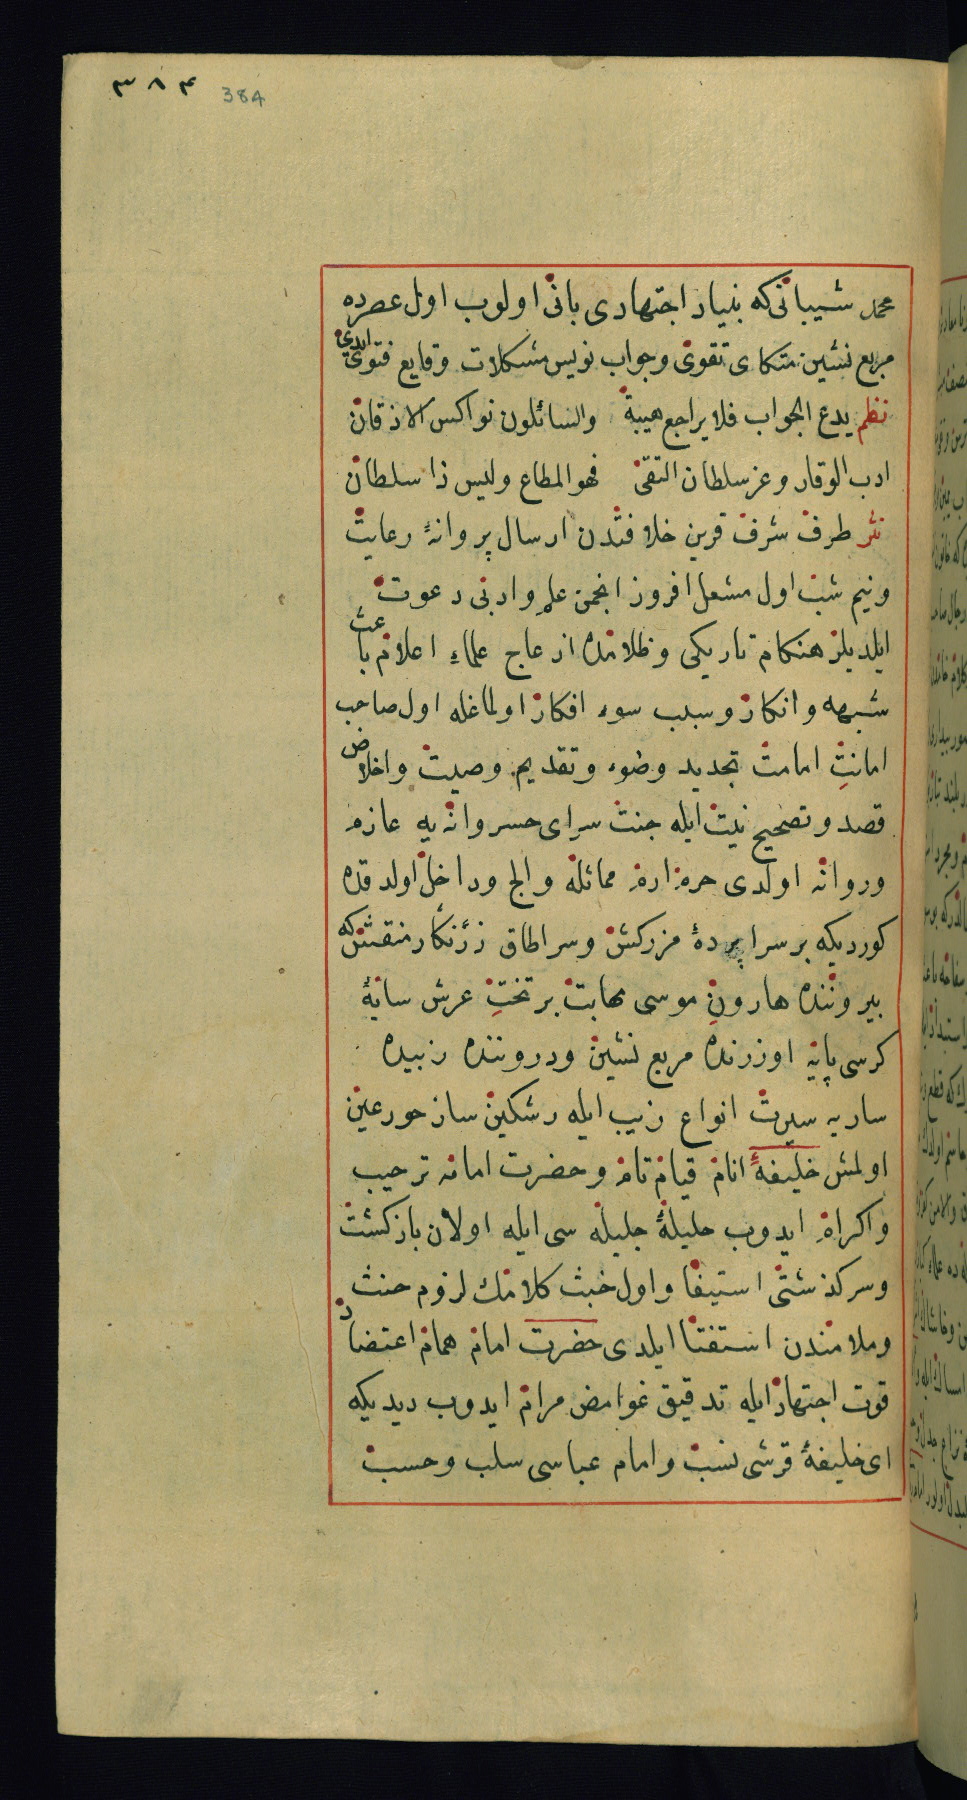 ۳۸۴ 384
محمد شیبانی که بنیاد اجتهادی بانی اولوب اول عصرده
مربع نشین متکای تقوی وجواب نویس مشکلات وقایع فتوی ایدی
نظم یدع الجواب فلا یراجع هیبة والسائلون نواکس الاذقان
ادب الوقار وعز سلطان التقی فهو المطاع ولیس ذا سلطان
نثر طرف شرف قرین خلافتدن ارسال پروانهٔ رعایت
ونیم شب اول مشعل افروز انجمن علم وادبی دعوت
ایلدیلر هنکام تاریکی وظلامده ازعاج علماء اعلام باعث
شبهه وانکار وسبب سوء افکار اولماغله اول صاحب
امانتِ امامت تجدید وضوء وتقدیم وصیت واخلاص
قصد وتصحیح نیت ایله جنت سرای خسروانه یه عازم
وروانه اولدی حرم ارم مماثله والج وداخل اولدقده
کوردیکه بر سراپردهٔ مزرکش وسراطاق زرنکار منقشکه
بیروننده هارونِ موسی مهابت بر تختِ عرش سایهٔ
کرسی پایه اوزرنده مربع نشین ودروننده زبیده
ساریه سیرت انواع زیب ایله رشکین ساز حور عین
اولمش خلیفهٔ انام قیام تام وحضرت امامه ترحیب
واکرام ایدوب حلیلهٔ جلیله سی ایله اولان بازکشت
وسرکذشتی استیفا واول خبث کلامک لزوم حنث
وملامندن استفتا ایلدی حضرت امام همام اعتضاد
قوت اجتهاد ایله تدقیق غوامض مرام ایدوب دیدیکه
ای خلیفهٔ قرشی نسب وامام عباسی سلب وحسب